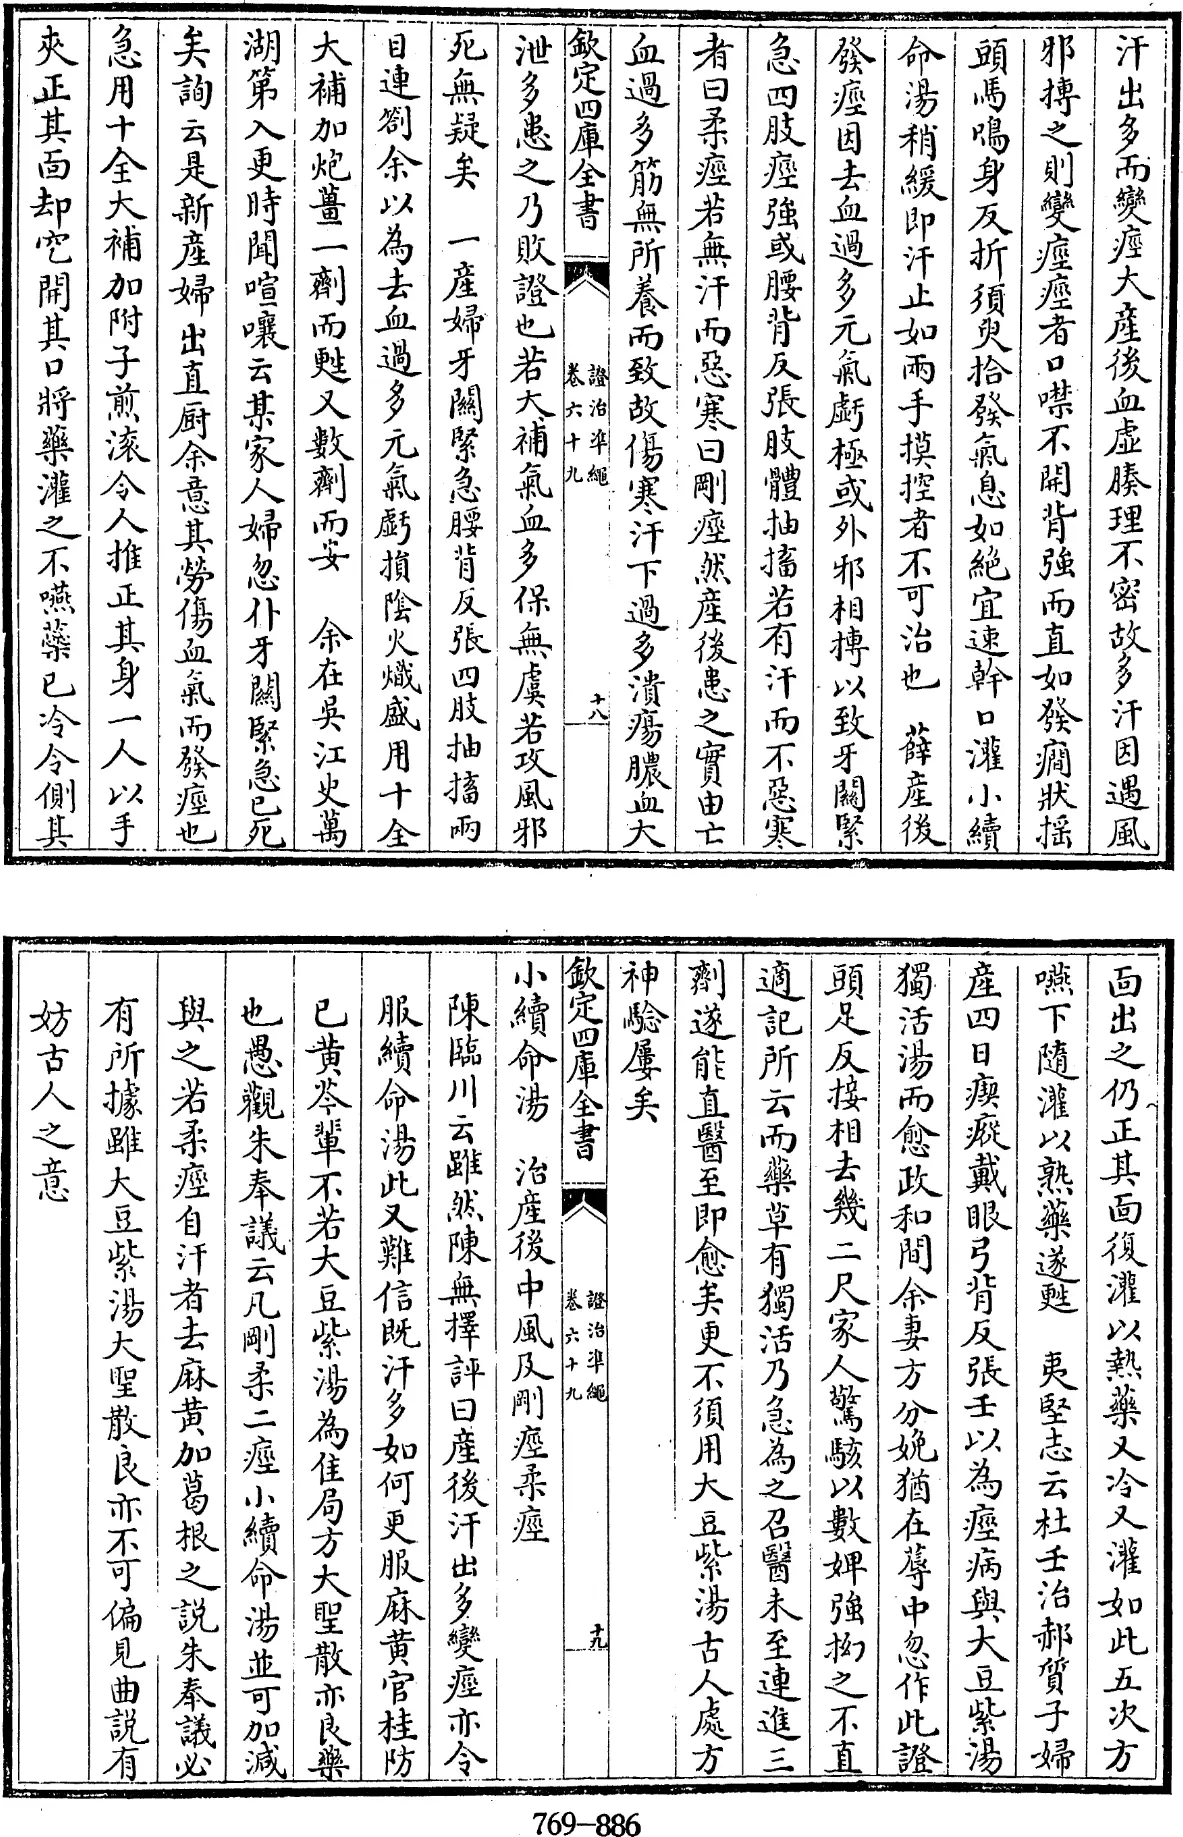 汗出多而變痙大産後血虛腠理不密故多汗因遇風
邪搏之則變痙痙者口噤不開背強而直如發癎狀揺
頭馬鳴身反折須臾拾發氣息如絶宜速幹口灌小續
命湯稍緩即汗止如兩手摸控者不可治也　薛産後
發痙因去血過多元氣虧極或外邪相搏以致牙關緊
急四肢痙強或腰背反張肢體抽搐若有汗而不惡寒
者曰柔痙若無汗而惡寒曰剛痙然産後患之實由亡
血過多筋無所養而致故傷寒汗下過多潰瘍膿血大
欽定四庫全書
證治凖繩
卷六十九
十八
泄多患之乃敗證也若大補氣血多保無虞若攻風邪
死無疑矣　一産婦牙關緊急腰背反張四肢抽搐兩
目連劄余以為去血過多元氣虧損陰火熾盛用十全
大補加炮薑一劑而甦又數劑而安　余在吳江史萬
湖第入更時聞喧嚷云某家人婦忽仆牙關緊急已死
矣詢云是新産婦出直厨余意其勞傷血氣而發痙也
急用十全大補加附子煎滚令人推正其身一人以手
夾正其面却空開其口將藥灌之不嚥藥已冷令側其
面出之仍正其面復灌以熱藥又冷又灌如此五次方
嚥下隨灌以熟藥遂甦　夷堅志云杜壬治郝質子婦
産四日瘈瘲戴眼弓背反張壬以為痙病與大豆紫湯
獨活湯而愈政和間余妻方分娩猶在蓐中忽作此證
頭足反接相去幾二尺家人驚駭以數婢強拗之不直
適記所云而藥草有獨活乃急為之召醫未至連進三
劑遂能直醫至即愈矣更不須用大豆紫湯古人處方
神驗屢矣
欽定四庫全書
證治凖繩
卷六十九
十九
小續命湯　治産後中風及剛痙柔痙
陳臨川云雖然陳無擇評曰産後汗出多變痙亦令
服續命湯此又難信既汗多如何更服麻黄官桂防
已黄芩輩不若大豆紫湯為佳局方大聖散亦良藥
也愚觀朱奉議云凡剛柔二痙小續命湯並可加減
與之若柔痙自汗者去麻黄加葛根之説朱奉議必
有所據雖大豆紫湯大聖散良亦不可偏見曲説有
妨古人之意
769-886